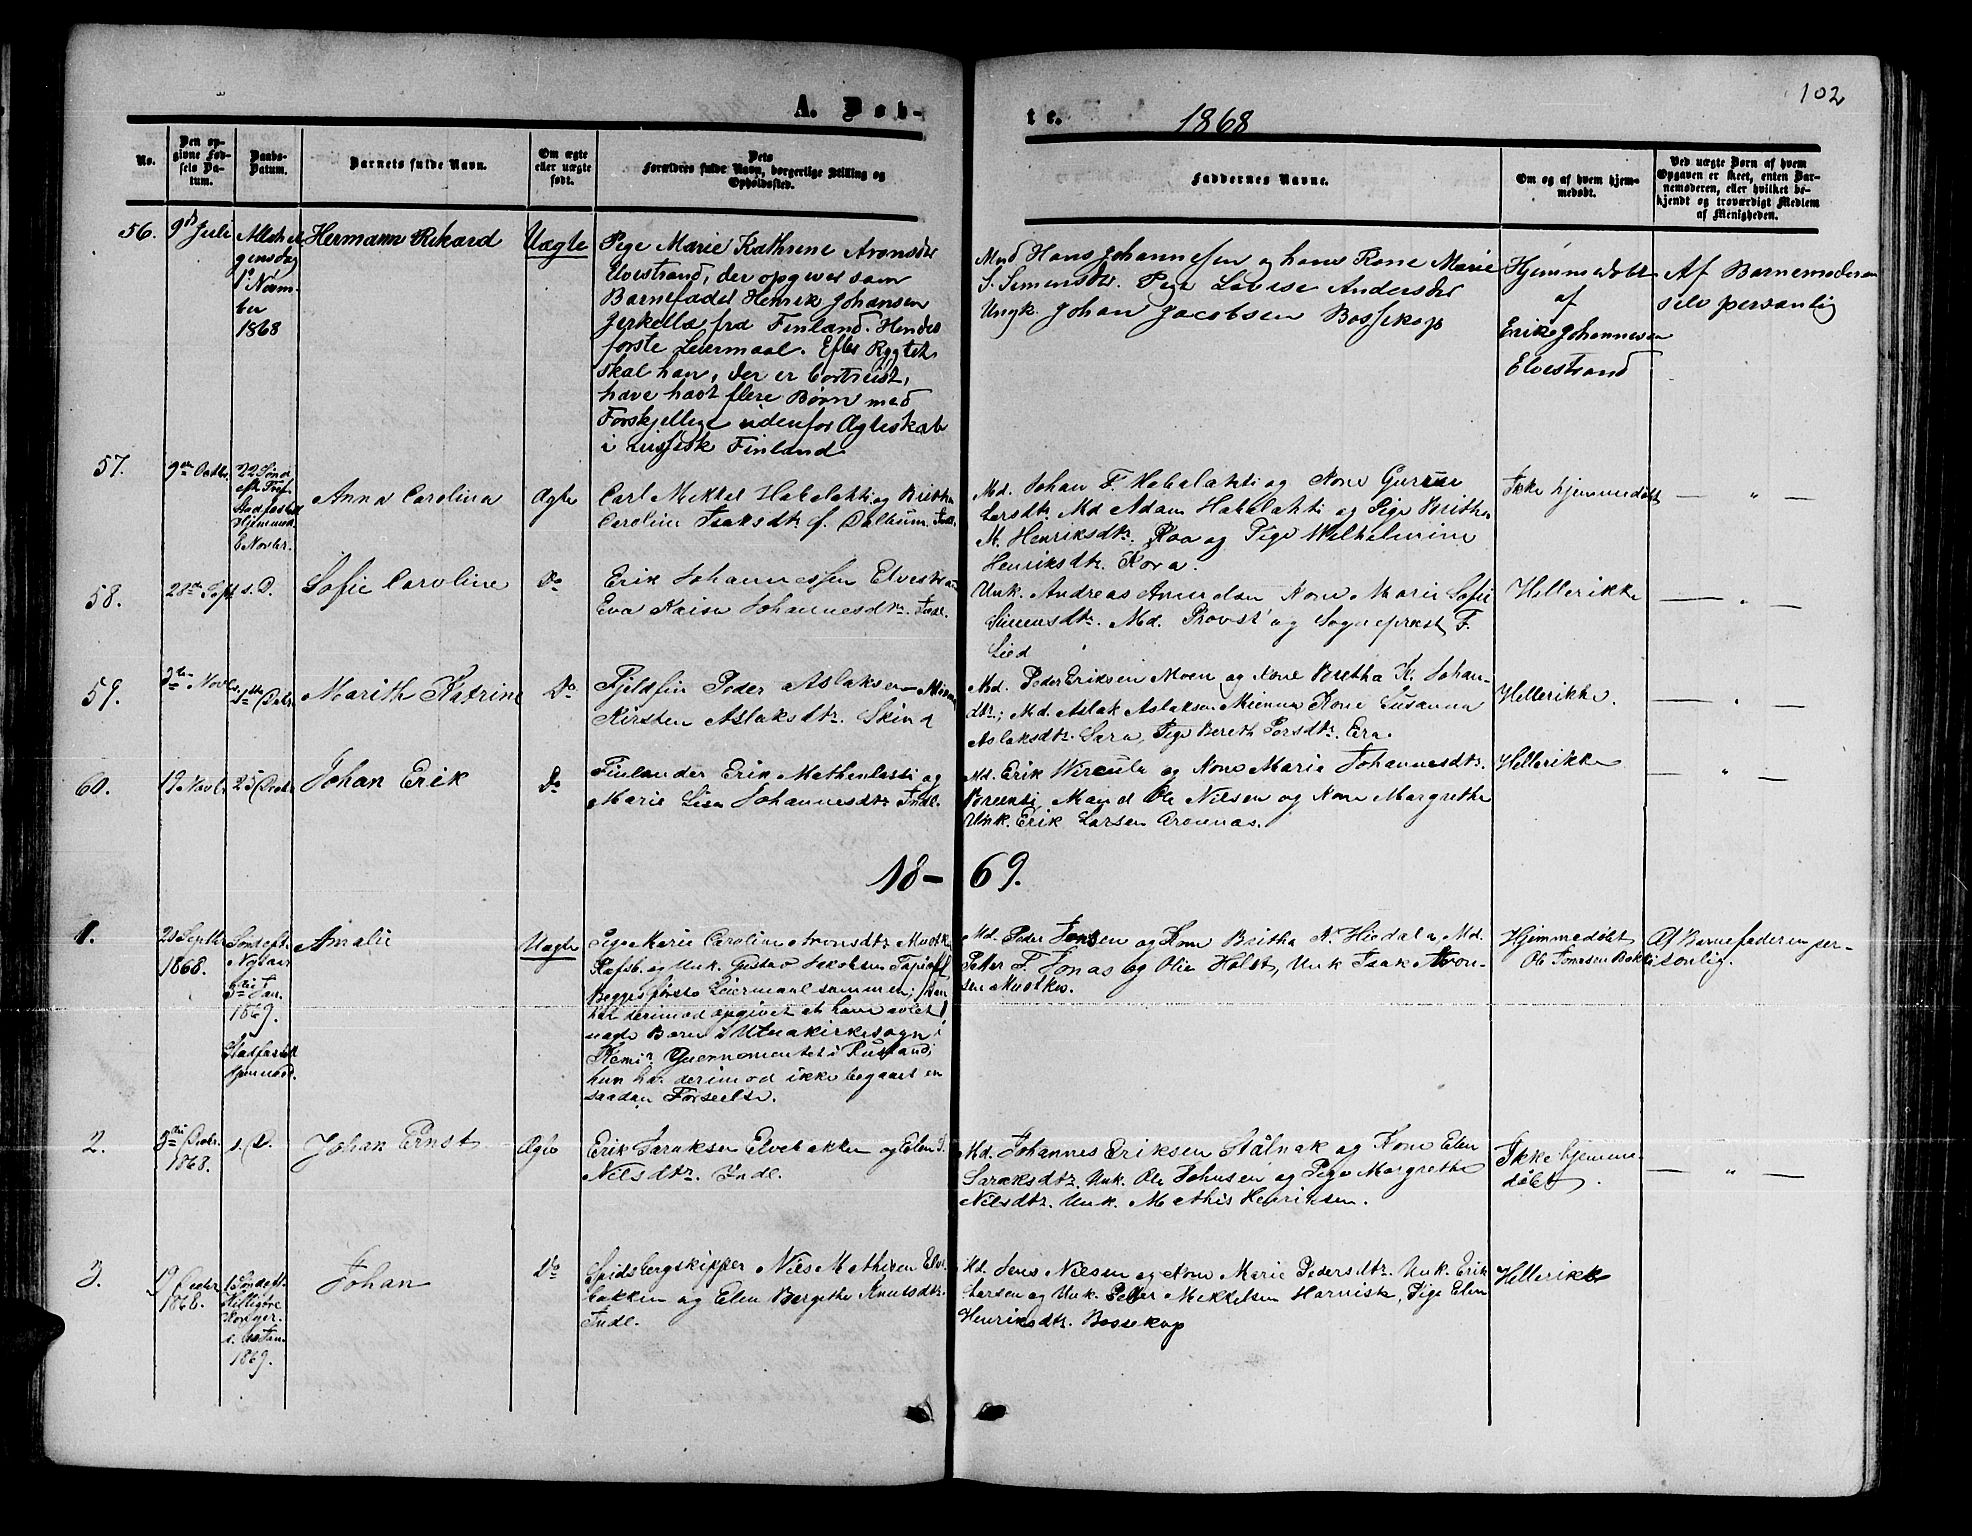 102
A. Døb-
te.
1868
No.
Den op-
givne Fød-
sels Da-
tum.
Daabs-
Datum.
Barnets fulde Navn.
Om ægte
eller uægte
født.
Dets
Forældres fulde Navn, borgerlige Stilling og
Opholdssted.
Faddernes Navne.
Om og af hvem hjem-
medøbt.
Ved uægte Børn af hvem
Opgaven er skeet, enten Bar-
nemoderen, eller hvilket be-
kjendt og troværdigt Medlem
af Menigheden.
56.
9de Juli
Allehel
gensdag
1ste Novem-
ber
1868
Hermann Rikard
Uægte
Pige Marie Kathrine Aronsdtr
Elvestrand, der opgiver som
Barnefader Henrik Johansen
Jerkella fra Finland. Hendes
første Leiermaal. Efter Rygtet
skal han, der er bortreist,
have havt flere Børn med
Forskjellige udenfor Ægteskab
i russisk Finland.
Md Hans Johannesen og hans Kone Marie
S. Simensdtr. Pige Lovise Andersdtr
Ungk. Johan Jacobsen Bossekop
Hjemmedøbt
af
Erik Johannesen
Elvestrand
Af Barnemoderen
selv personlig
57.
9de Octbr.
22 Sønd.
eft Tref.
Stadfæstet
Hjemmed.
8 Novbr.
Anna Carolina
Ægte
Carl Mikkel Habalakti og Britha
Caroline Isaksdtr f. Dalbum. Indl.
Md. Johan F. Habalakti og Kone Guruse
Larsdtr. Md Adam Habalakti og Pige Britha
M. Henriksdtr. Kova og Pige Wilhelmine
Henriksdtr. Kova.
Ikke hjemmedøbt
— " —
58.
28de Sept
s. D.
Sofie Caroline
Do
Erik Johannessen Elvestrand
Eva Kaisa Johannesdtr. Indl.
Unk. Andreas Amundsen Kone Marie Sofie
Simensdtr. Md. Provst og Sognepræst F.
Lied
Hellerikke
— " —
59.
3die Novbr.
1ste Decbr.
Marith Katrine
Do
Fjeldfin Peder Aslaksen
Kirsten Aslaksdtr. Skind
Md. Peder Eriksen Moen og Kone Beretha K. Johan-
dtr; Md. Aslak Aslaksen Mienna Kone Susanna
Aslaksdtr. Sara, Pige Bereth Porsdtr. Era.
Hellerikke.
— " —
60.
19 Novbr.
25 Decbr.
Johan Erik
Do
Finlænder Erik Mathenlasti og
Marie Lisa Johannesdtr Indl.
Md. Erik Wircula og Kone Maria Johannesdtr.
Mand Ole Nilsen og Kone Margrethe
Unk. Erik Larsen Aronnæs.
Hellerikke
— " —
18-69.
1.
20 Septbr
1868.
Sønd eft.
Nytaar
3die Jan.
1869.
Stadfæstet
Hjemmed.
Amalie
Uægte
Pige Marie Caroline Aronsdtr. Muotka
Rafsb. og Unk. Gustav Jakobsen
Begges første Leiermaal sammen; Han
har derimod opgivet at have avlet 1
uægte Barn i Utnakirkesogn i
Kemi? Guvernementet i Rusland;
hun har derimod ikke begaaet en
saadan Forseelse.
Md. Peder Jensen og Kone Britha N. Hiedala, Md.
Peter F. Jonas og Olin Holst, Unk Isak Aron-
sen Muotka.
Hjemmedøbt
Ole Tomesen Bakk
Af Barnefaderen per-
sonlig.
2.
3die Decbr.
1868.
s. D.
Johan Ernst
Ægte
Erik Saraksen Elvebakken og Elen
Nilsdtr. Indl.
Md. Johannes Eriksen Stålnak og Kone Elen
Saraksdtr. Unk. Ole Johnsen og Pige Margrethe
Nilsdtr. Unk. Mathis Henriksen.
Ikke hjemme-
døbt.
— " —
3.
19 Decbr
1868.
1 Sønd eft.
Helligtre
Konger
1869.
Johan
Do
Spidsbergskipper Nils Mathisen Elve
bakken og Elen Bergithe Knutsdtr.
Indl.
Md. Jens Nilsen og Kone Marie Pedersdtr. Unk. Erik
Larsen og Unk. Peter Mikkelsen Harnisk, Pige Elen
Henriksdtr. Bossekop
Hellerikke